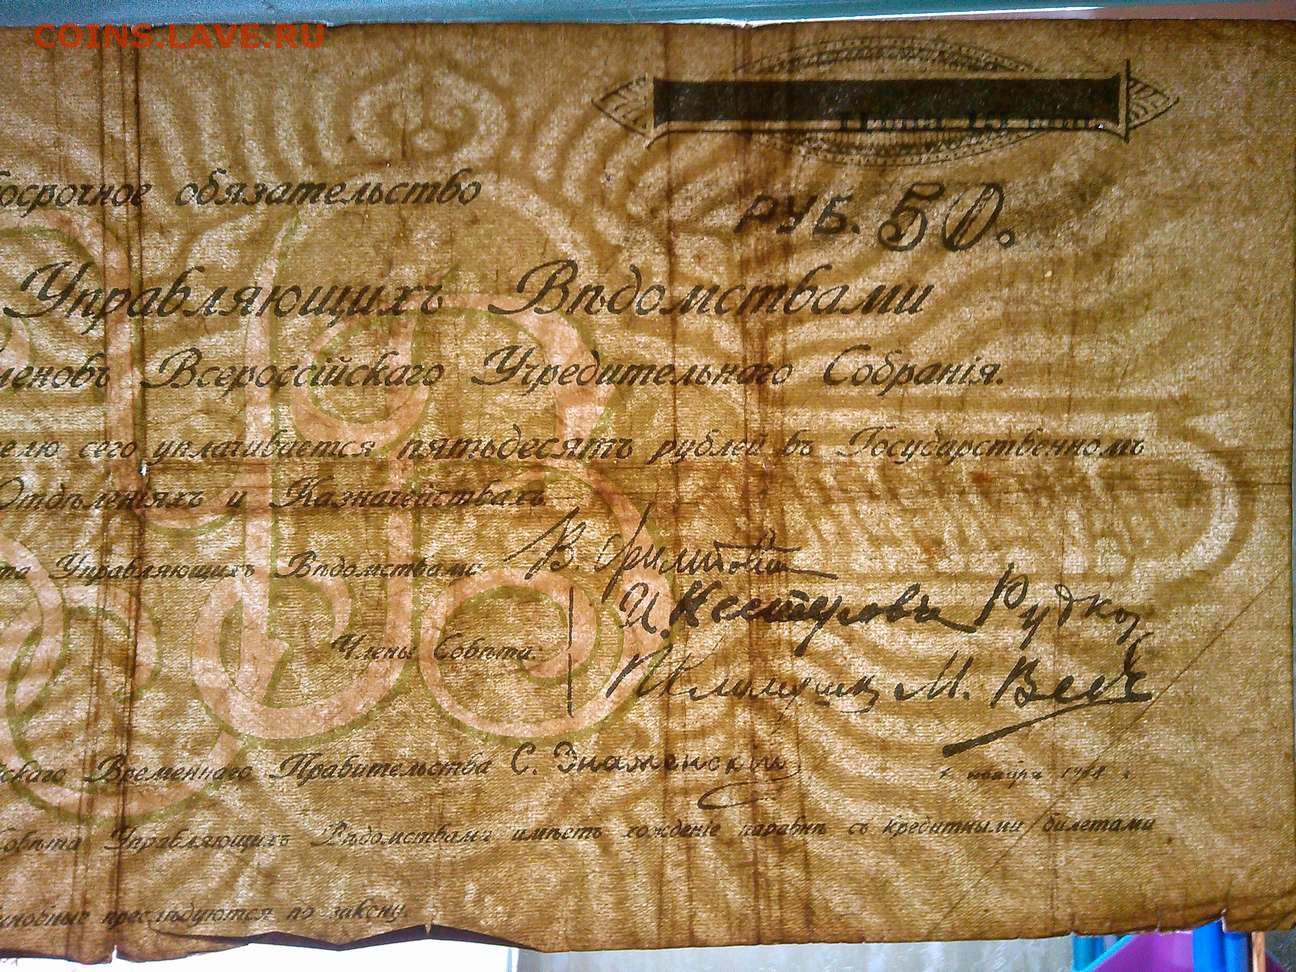 COINS.LAVE.RU
Цѣна 15 коп.
госрочное обязательство
РУБ. 50.
Управляющихъ Вѣдомствами
леновъ Всероссійскаго Учредительнаго Собранія.
елю сего уплачивается пятьдесятъ рублей въ Государственномъ
Отдѣленіяхъ и Казначействахъ
та Управляющихъ Вѣдомствами:
И. Нестеровъ Рудко
Члены Совѣта:
М. Веде
скаго Временнаго Правительства С. Знаменскій
ноября 1918 г.
Совѣта Управляющихъ Вѣдомствами имѣетъ хожденіе наравнѣ съ кредитными билетами
иновные преслѣдуются по закону.